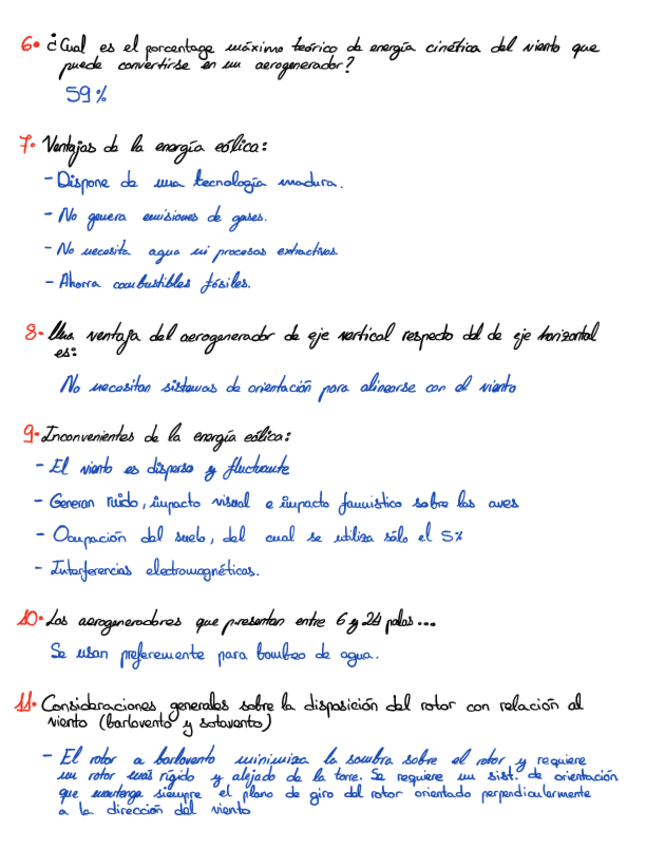 6• ¿Cual es el porcentage máximo teórico de energía cinética del viento que
puede convertirse en un aerogenerador?
59%
7• Ventajas de la energía eólica:
- Dispone de una tecnología madura.
- No genera emisiones de gases.
- No necesita agua ni procesos extractivos.
- Ahorra combustibles fósiles.
8• Una ventaja del aerogenerador de eje vertical respecto del de eje horizontal
es:
No necesitan sistemas de orientación para alinearse con el viento
9• Inconvenientes de la energía eólica:
- El viento es disperso y fluctuante
- Generan ruido, impacto visual e impacto faunístico sobre las aves
- Ocupación del suelo, del cual se utiliza sólo el 5%
- Interferencias electromagnéticas.
10• Los aerogeneradores que presentan entre 6 y 24 palas...
Se usan preferemente para bombeo de agua.
11• Consideraciones generales sobre la disposición del rotor con relación al
viento (barlovento y sotavento)
- El rotor a barlovento minimiza la sombra sobre el rotor y requiere
un rotor más rígido y alejado de la torre. Se requiere un sist. de orientación
que mantenga siempre el plano de giro del rotor orientado perpendicularmente
a la dirección del viento